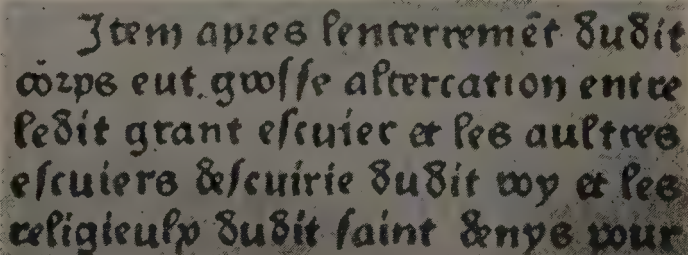 Item apres lenterremẽt dudit
corps eut grosse altercation entre
ledit grant escuier et les aultres
escuiers descuirie dudit roy et les
religieulx dudit saint denys pour